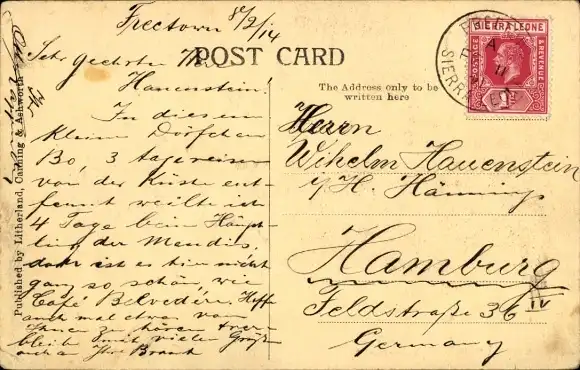 Freetown 8/2/14
POST CARD
The Address only to be
written here
Sehr geehrter
Hauenstein.
In diesem
kleinen Dörfchen
Bo, 3 tagereisen
von der Küste ent-
fernt weilte ich
4 Tage beim Häupt-
ling der Mendis,
doch ist es hier nicht
ganz so schön, wie
Café Belvedère. Hoffe
auch mal etwas von
Ihnen zu hören
bleibe mit vielen Grüßen
auch an Ihre Braut
Published by Litherland, Canning & Ashworth
SIERRA LEONE
POSTAGE
& REVENUE
1d
Herrn
Wilhelm Hauenstein
H. Hännings
Hamburg
IV
Feldstraße 36
Germany